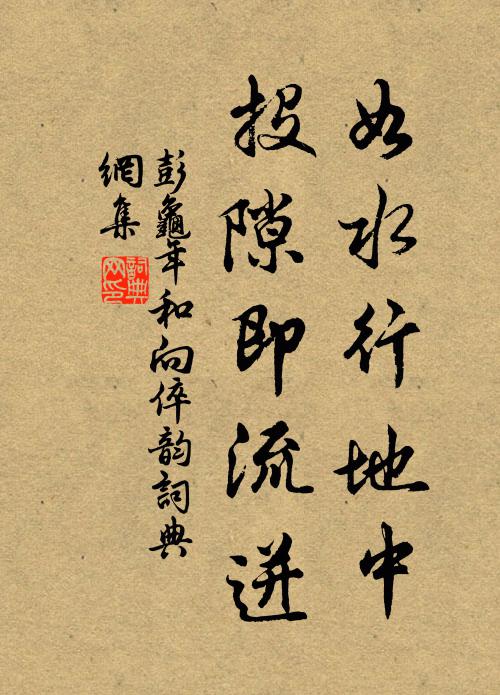 如水行地中
投隙即流迸
彭龜年和向倅韵詞典
網集
詞典網印